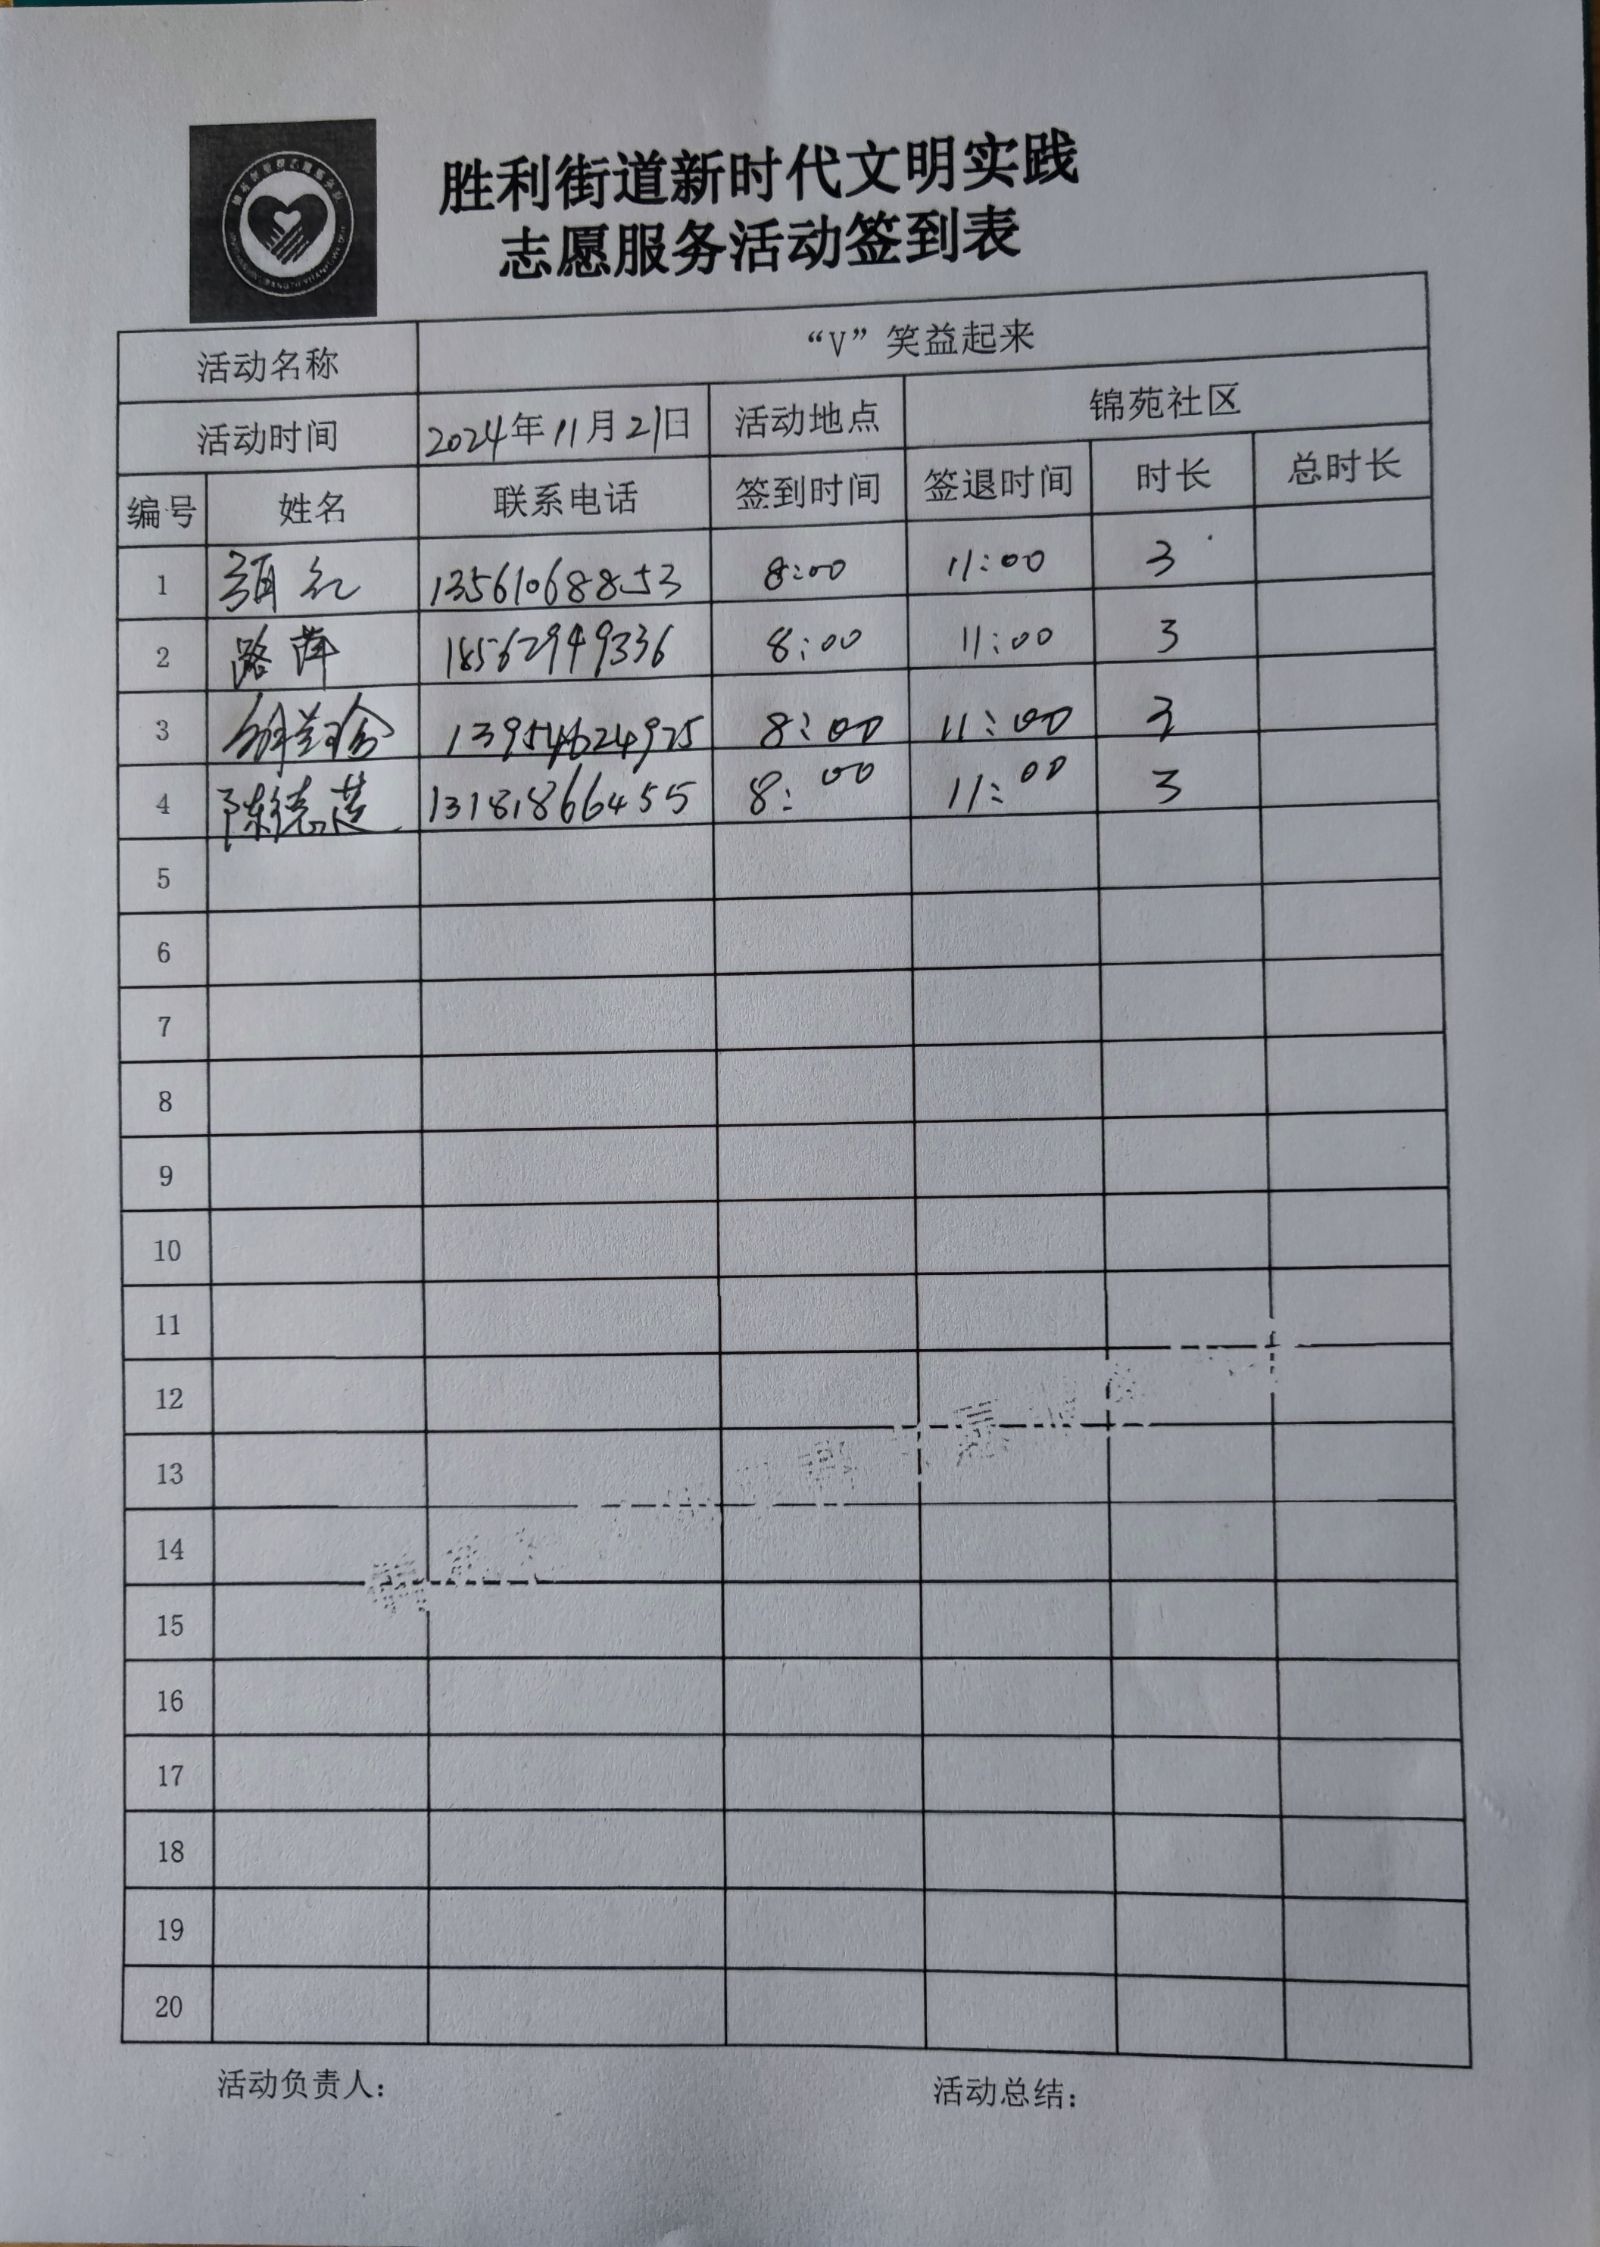 胜利街道新时代文明实践
志愿服务活动签到表
活动名称 “V”笑益起来
活动时间 2024年11月21日 活动地点 锦苑社区
编号 姓名 联系电话 签到时间 签退时间 时长 总时长
1 红 13561068853 8:00 11:00 3
2 路萍 18562949336 8:00 11:00 3
3 13954624925 8:00 11:00 3
4 陈德莲 13181866455 8:00 11:00 3
5
6
7
8
9
10
11
12
13
14
15
16
17
18
19
20
活动负责人： 活动总结：